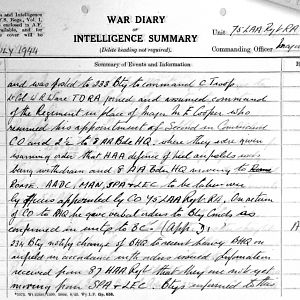 and Intelligence
F.S. Regs., Vol. I.
WAR DIARY
OF
INTELLIGENCE SUMMARY
(Delete heading not required).
Unit 75 LAA Regt RA
Commanding Officer Major
JULY 1944
Summary of Events and Information
and was posted to 233 Bty to command C Troop
Lt Col W R Ware TDRA joined and assumed command
of the Regiment in place of Major M E Cooper who
resumed his appointment of Second in Command
CO and 2 i/c 8 AA Bde HQ where they were given
warning order that HAA defence of heel airfields was
being withdrawn and 8 AA Bde HQ moving to Rome
Roads AADC, MAN, SPA & LEC to be taken over
by officers appointed by CO 75 LAA Regt RA. On return
of CO to RHQ he gave verbal orders to Bty Cmds as
confirmed in writing to BC's (App. J)
234 Bty notify change of BHQ to recent heavy BHQ on
airfield in accordance with orders issued. Information
received from 87 HAA Regt that they are not yet
moving from SPA & LEC. Btys informed to this